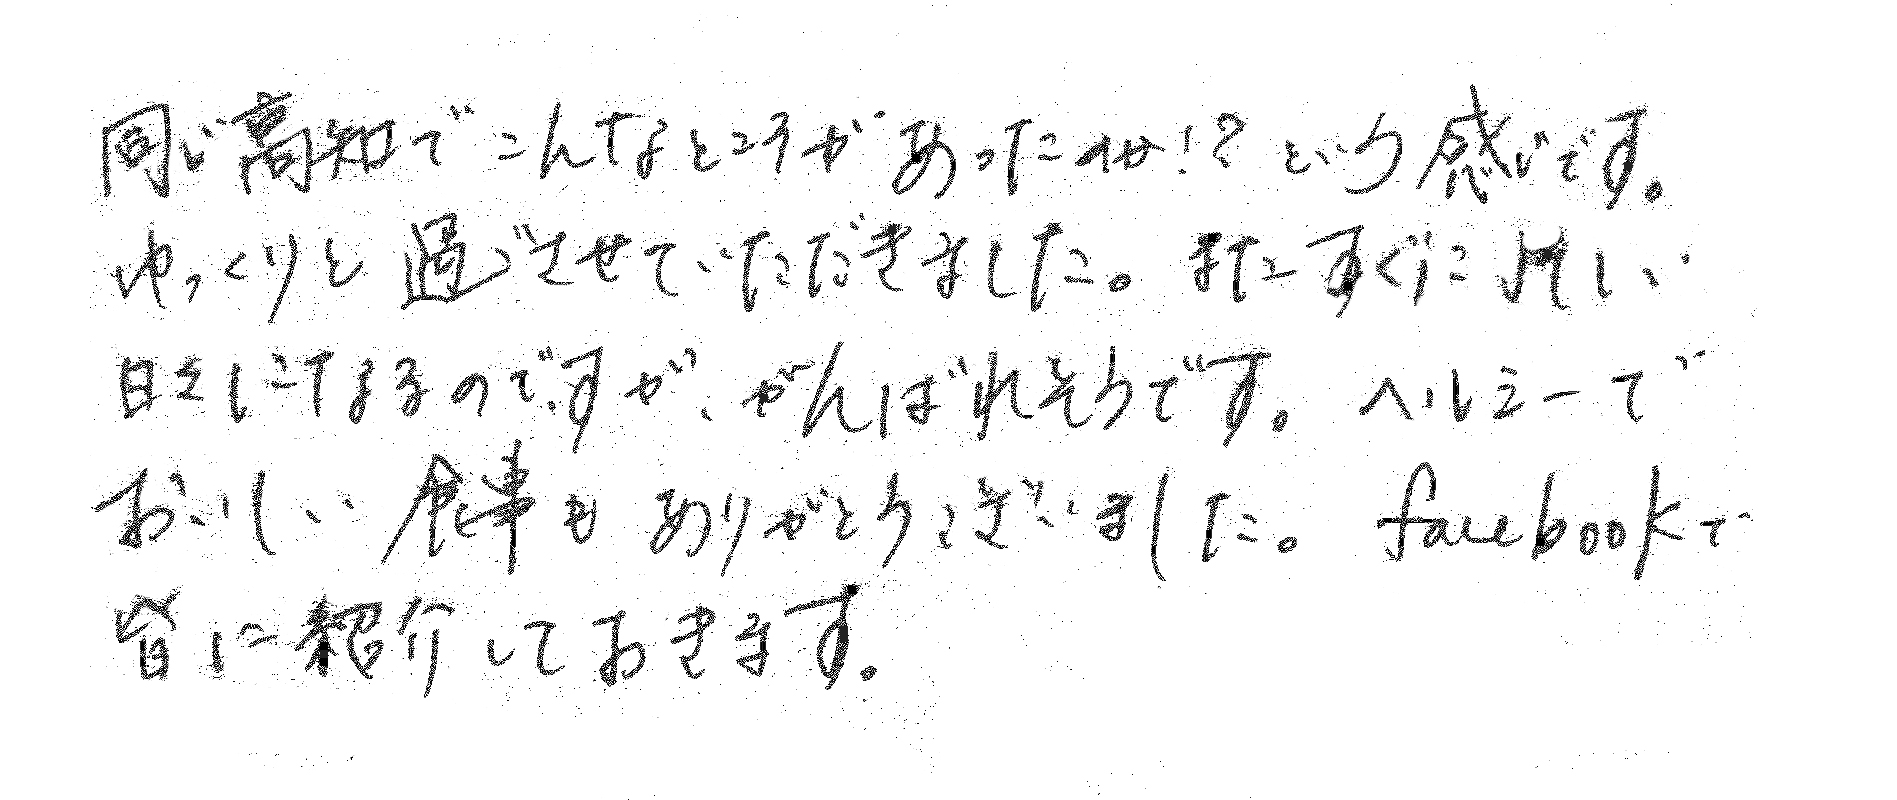 同じ高知でこんなところがあったのか!?という感じです。
ゆっくりと過ごさせていただきました。またすぐに忙しい
日々になるのですが、がんばれそうです。ヘルシーで
おいしい食事もありがとうございました。facebookで
皆に紹介しておきます。